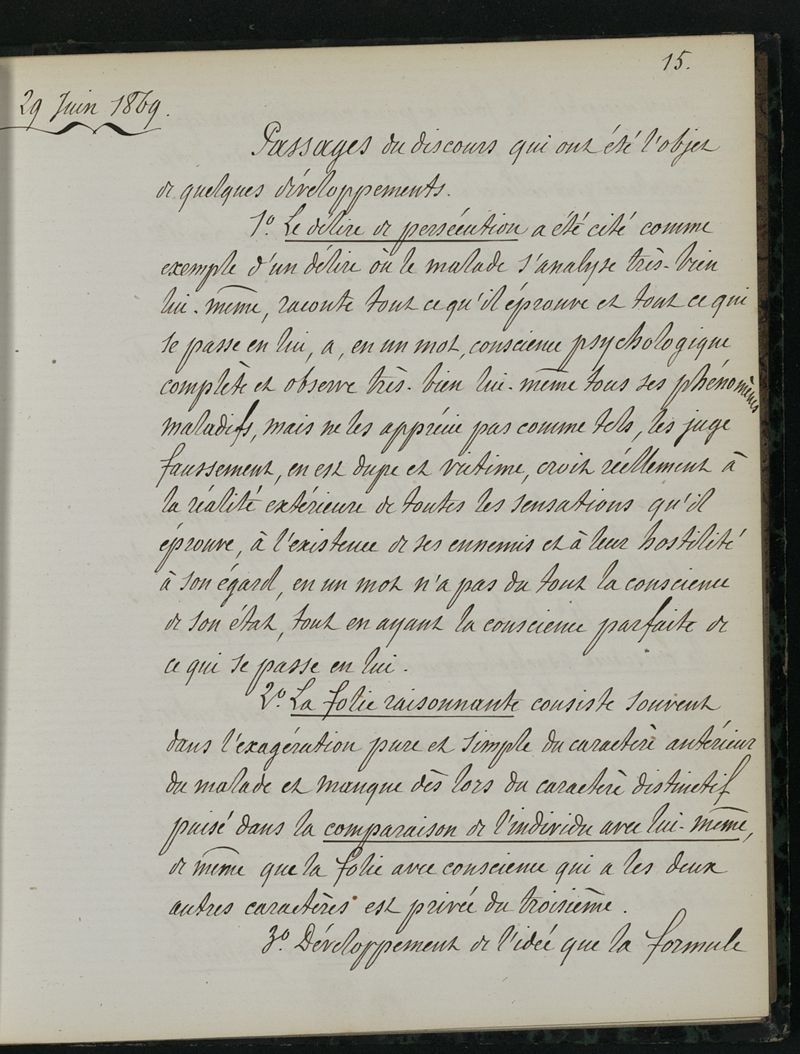 15.
29 Juin 1869.
Passages du discours qui ont été l'objet
de quelques développements.
1º. Le délire de persécution a été cité comme
exemple d'un délire où le malade s'analyse très-bien
lui-même, raconte tout ce qu'il éprouve et tout ce qui
se passe en lui, a, en un mot, conscience psychologique
complète et observe très-bien lui-même tous ses phénomènes
maladifs, mais ne les apprécie pas comme tels, les juge
faussement, en est dupe et victime, croit réellement à
la réalité extérieure de toutes les sensations qu'il
éprouve, à l'existence de ses ennemis et à leur hostilité
à son égard, en un mot n'a pas du tout la conscience
de son état, tout en ayant la conscience parfaite de
ce qui se passe en lui.
2º. La folie raisonnante consiste souvent
dans l'exagération pure et simple du caractère antérieur
du malade et manque dès lors du caractère distinctif
puisé dans la comparaison de l'individu avec lui-même,
de même que la folie avec conscience qui a les deux
autres caractères est privée du troisième.
3º. Développement de l'idée que la formule